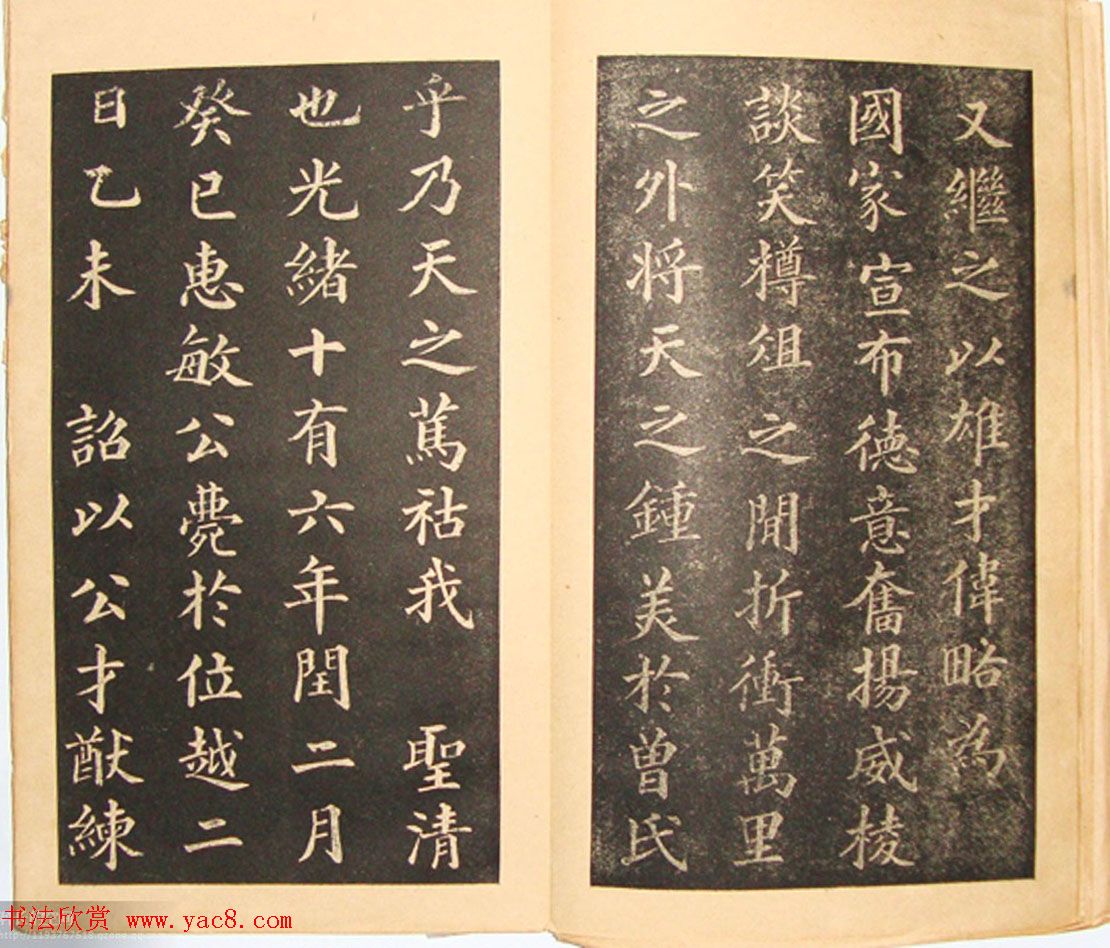 又繼之以雄才偉略為
國家宣布德意奮揚威棱
談笑樽俎之間折衝萬里
之外将天之鍾美於曾氏
乎乃天之篤祜我 聖清
也光緒十有六年閏二月
癸巳惠敏公薨於位越二
日乙未 詔以公才猷練
书法欣赏 www.yac8.com